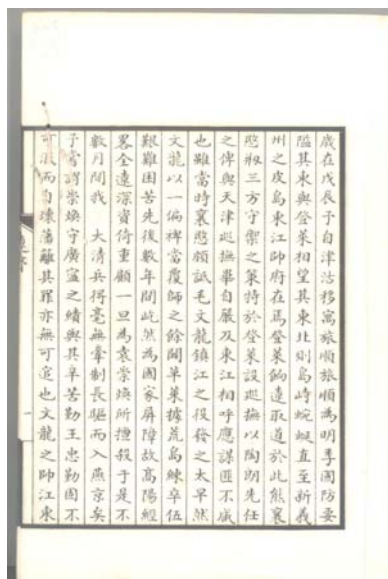 歲在戊辰予自津沽移寓旅順旅順為明季國防要
隘其東與登萊相望其東北則島嶼蜿蜒直至新義
州之皮島東江帥府在焉登萊餉運取道於此熊襄
愍叔三方守禦之策特於登萊設巡撫以陶朗先任
之俾與天津巡撫畢自嚴及東江相呼應謀匪不臧
也雖當時襄愍頗詆毛文龍鎮江之役發之太早然
文龍以一偏裨當覆師之餘闢草萊據荒島練卒伍
艱難困苦先後數年間屹然為國家屏障故高陽經
畧全遼深資倚重顧一旦為袁崇煥所擅殺于是不
數月間我 大清兵得毫無牽制長驅而入燕京矣
予嘗謂崇煥守廣寧之績與其率苦勤王忠勤固不
可沒而自壞藩離其罪亦無可逭也文龍之帥江東
序
一